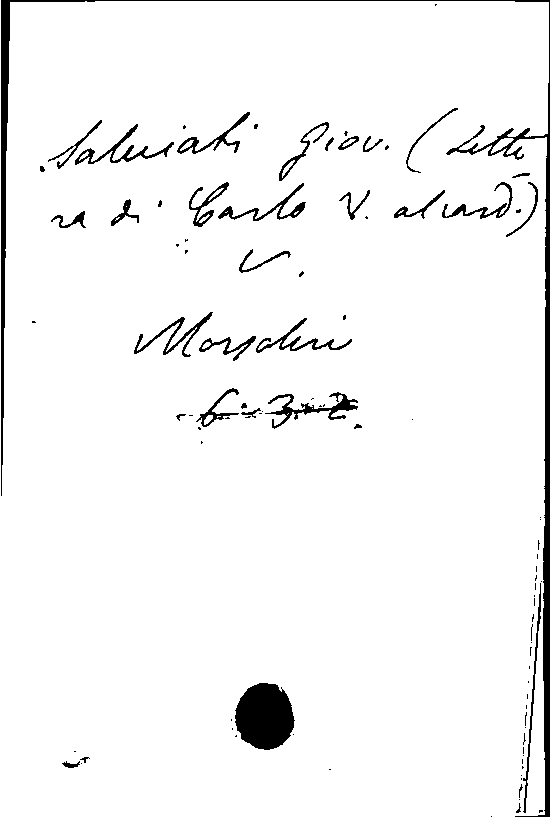 Salviati Giov. (Lette
ra di Carlo V. al card.)
V.
Morsolin
6. 3. 2.